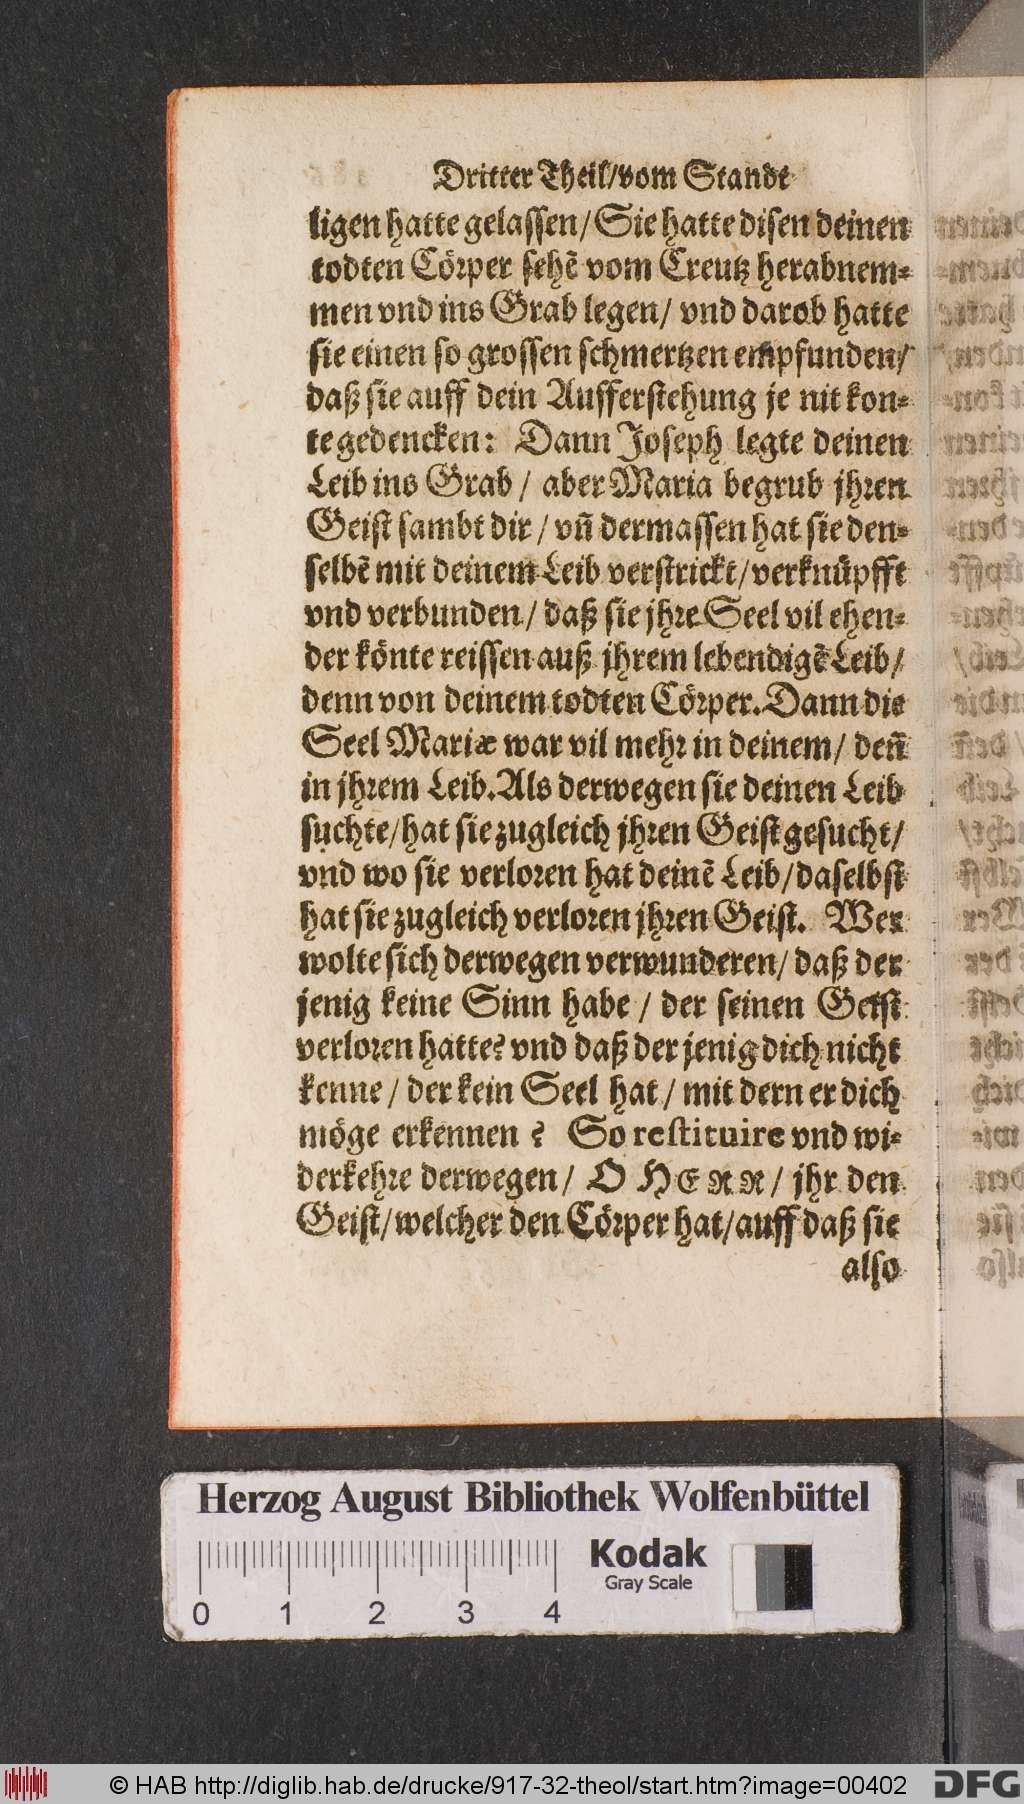 Dritter Theil/vom Standt
ligen hatte gelassen/ Sie hatte disen deinen
todten Cörper sehẽ vom Creutz herabnem-
men vnd ins Grab legen/ vnd darob hatte
sie einen so grossen schmertzen empfunden/
daß sie auff dein Aufferstehung je nit kon-
te gedencken: Dann Joseph legte deinen
Leib ins Grab / aber Maria begrub jhren
Geist sambt dir / vñ dermassen hat sie den-
selbẽ mit deinem Leib verstrickt/verknüpfft
vnd verbunden/ daß sie jhre Seel vil ehen-
der könte reissen auß jhrem lebendigẽ Leib/
denn von deinem todten Cörper. Dann die
Seel Mariæ war vil mehr in deinem/ deñ
in jhrem Leib. Als derwegen sie deinen Leib
suchte/hat sie zugleich jhren Geist gesucht/
vnd wo sie verloren hat deinẽ Leib/daselbst
hat sie zugleich verloren jhren Geist. Wer
wolte sich derwegen verwunderen/ daß der
jenig keine Sinn habe / der seinen Geist
verloren hatte? vnd daß der jenig dich nicht
kenne / der kein Seel hat / mit dern er dich
möge erkennen ? So restituire vnd wi-
derkehre derwegen/ O HERR/ jhr den
Geist/welcher den Cörper hat/auff daß sie
also
Herzog August Bibliothek Wolfenbüttel
Kodak
Gray Scale
0 1 2 3 4
© HAB http://diglib.hab.de/drucke/917-32-theol/start.htm?image=00402
DFG